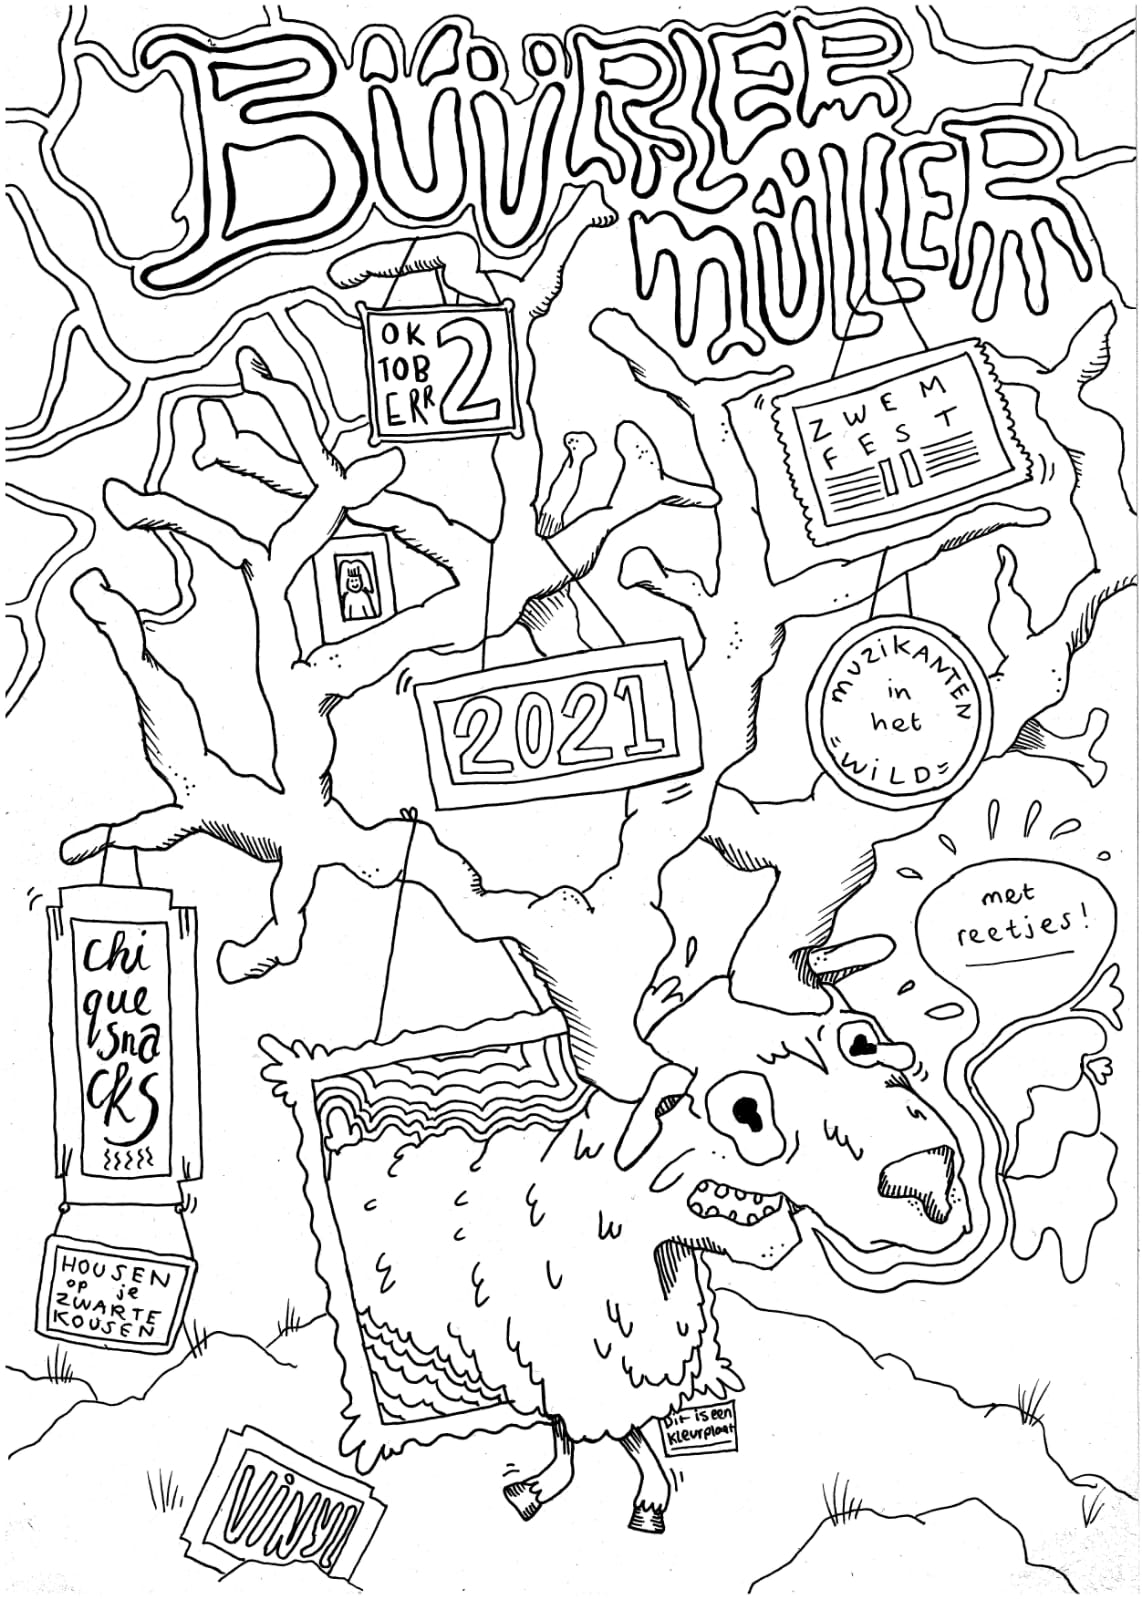 BÜÜRLER
MÜLLER
OK
TOB
ERR
2
ZWEM
FEST
2021
MUZIKANTEN
in
het
=WILD=
met
reetjes!
chi
que
sna
cks
HOUSEN
op je
ZWARTE
KOUSEN
Dit is een
kleurplaat
VINYL